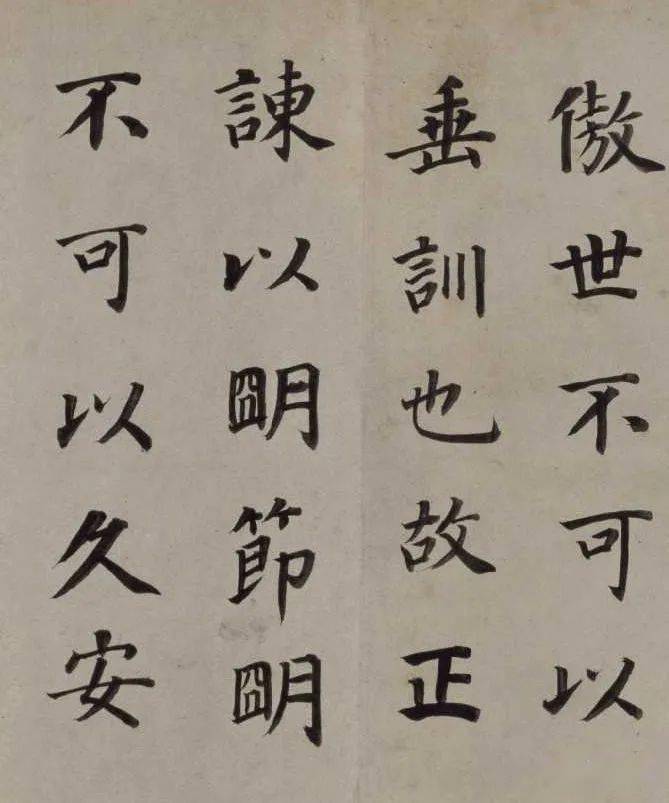 傲世不可以
垂訓也故正
諫以朙節朙
不可以久安